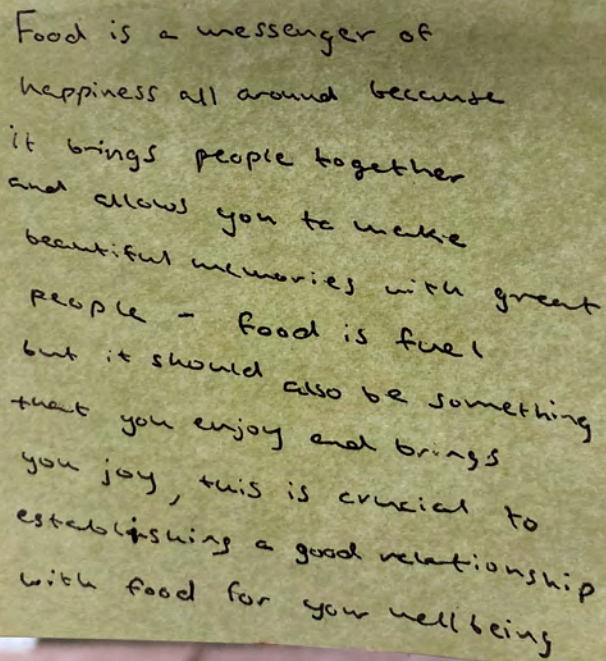 Food is a messenger of
happiness all around because
it brings people together
and allows you to make
beautiful memories with great
people - food is fuel
but it should also be something
that you enjoy and brings
you joy, this is crucial to
establishing a good relationship
with food for your wellbeing